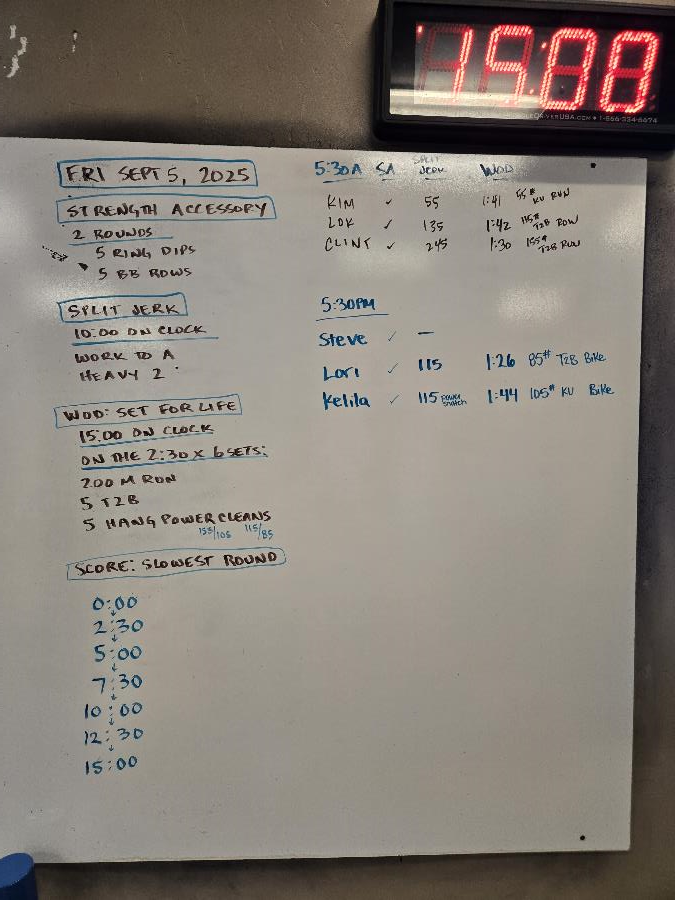 15:00
1-866-334-6674
FRI SEPT 5, 2025
STRENGTH ACCESSORY
2 ROUNDS
5 RING DIPS
5 BB ROWS
SPLIT JERK
10:00 ON CLOCK
WORK TO A
HEAVY 2
WOD: SET FOR LIFE
15:00 ON CLOCK
ON THE 2:30 X 6 SETS:
200 M RUN
5 T2B
5 HANG POWER CLEANS
155/105 115/85
SCORE: SLOWEST ROUND
0:00
2:30
5:00
7:30
10:00
12:30
15:00
5:30A SA SPLIT JERK WOD
KIM ✓ 55 1:41 55# KU RUN
LOK ✓ 135 1:42 115# T2B ROW
CLINT ✓ 245 1:30 155# T2B RUN
5:30PM
Steve ✓ —
Lori ✓ 115 1:26 85# T2B Bike
Kelila ✓ 115 Power Snatch 1:44 105# KU Bike